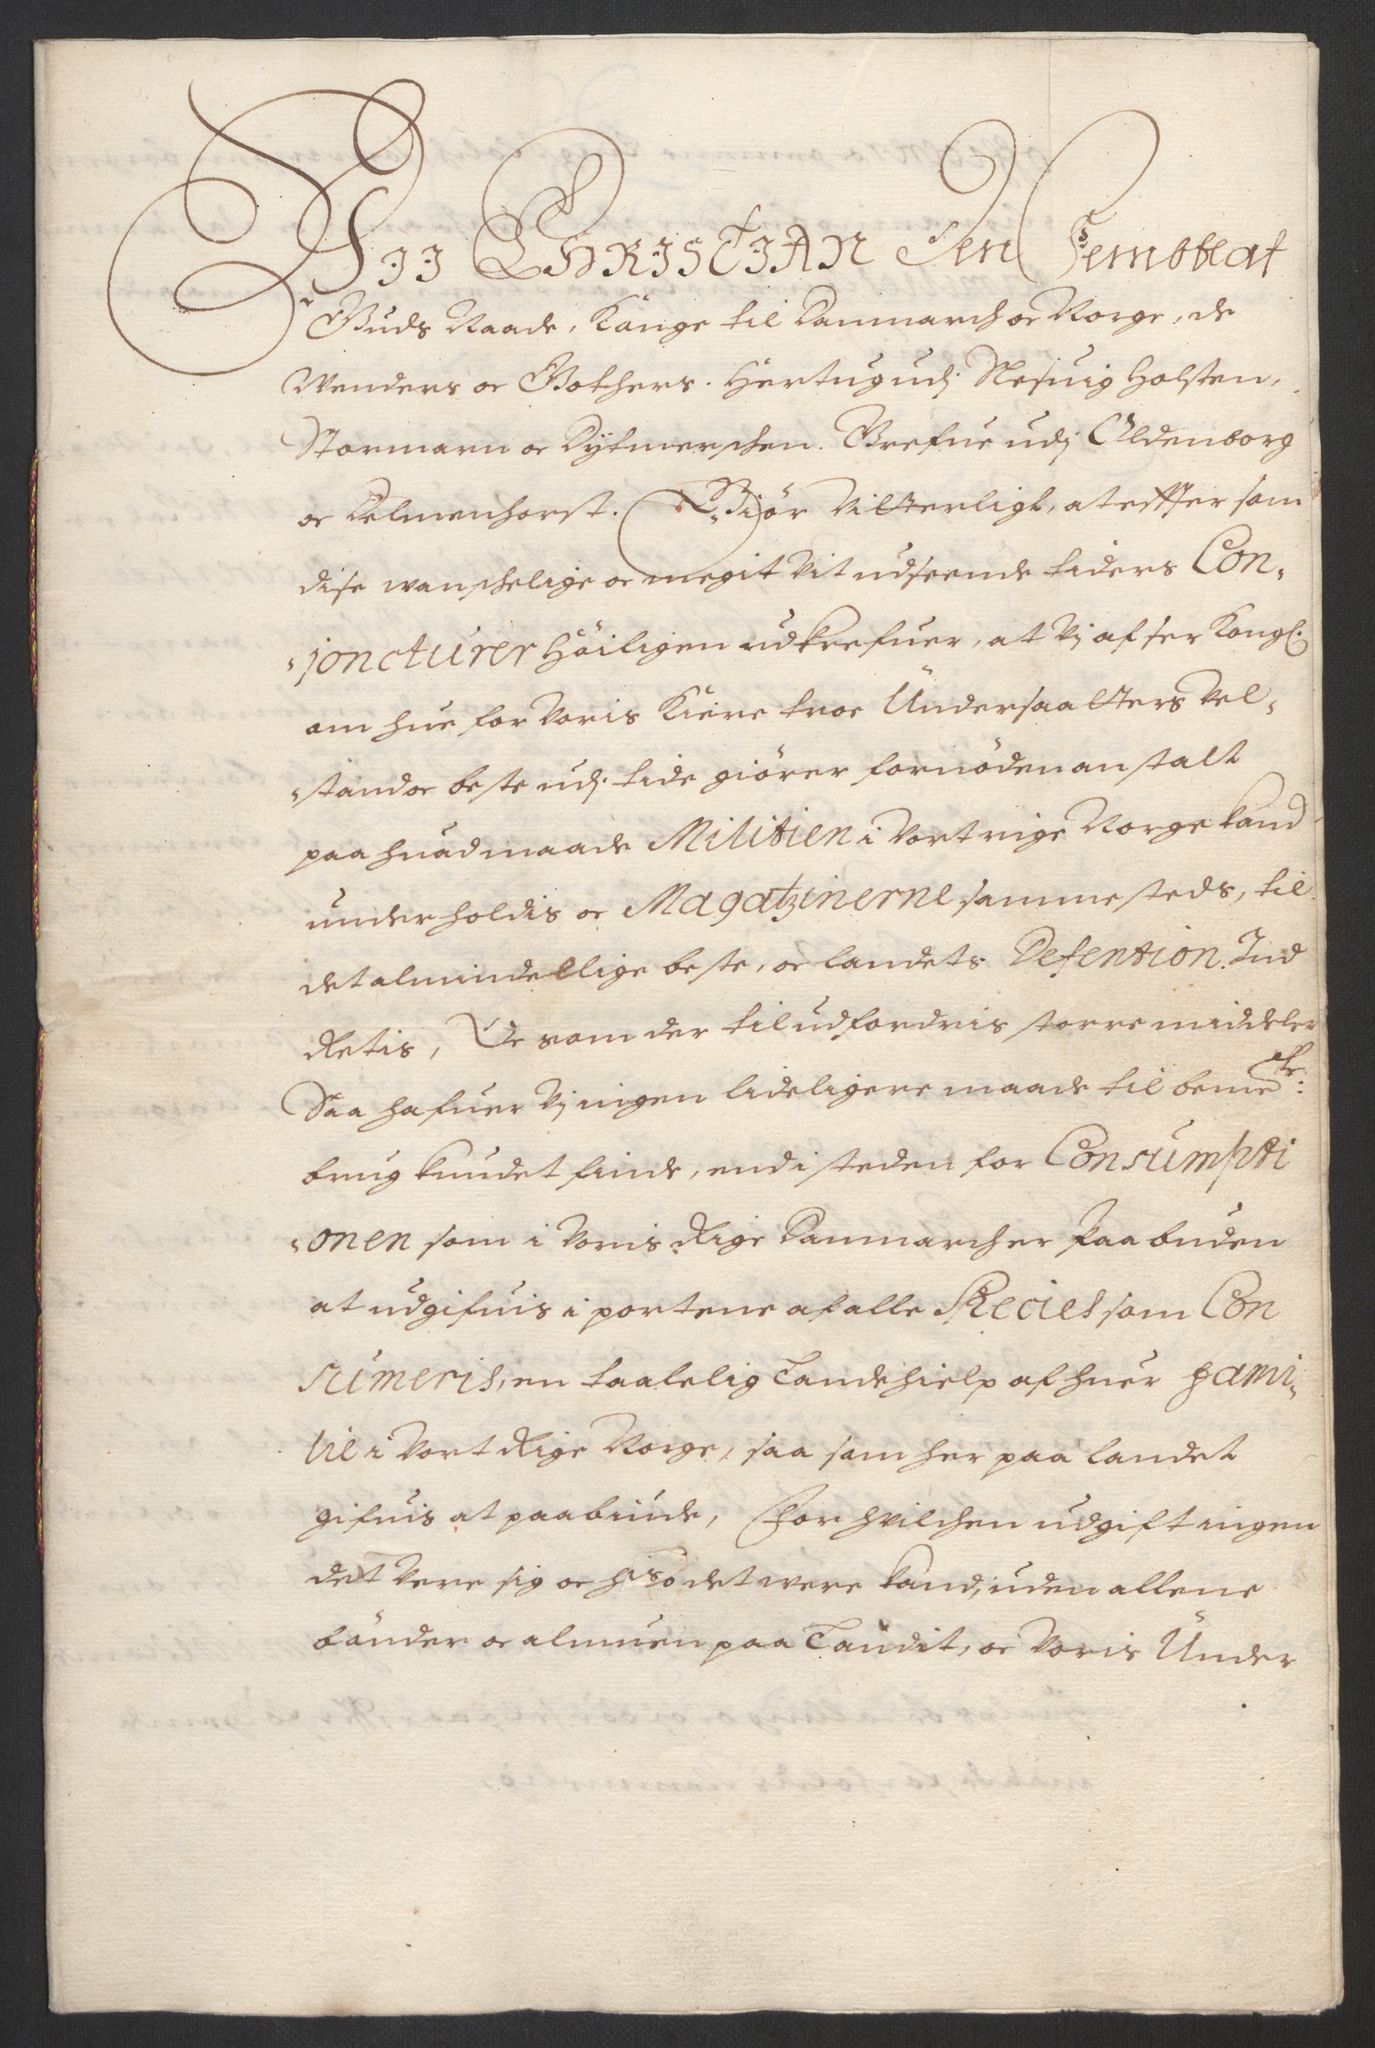 Wii CHRISTIAN den Femte af
Guds Naade, Konge til Danmarch oc Norge, de
Wenders oc Gothers. Hertug udj Slesuig Holsten,
Stormarn oc Dytmerschen. Grefue udj Oldenborg
oc Delmenhorst. Giör Vitterligt, at effter som
disse wanschelige oc megit Vit udseende tiders Con-
-joncturer Höiligen udkrefuer, at Vj af ser Kongl:
omhue for Voris Kiere troe Undersaatters Vel-
-stand oc beste udj tide giörer fornöden anstalt
paa huad maade Militien i Vort rige Norge kand
underholdis oc Magatzinerne sammesteds, til
det almindellige beste, oc landets Defention. Ind
Retis, Oc som der til udfordris storre middeler
Saa hafuer Vj ingen lideligere maade til bemte:
brug kundet finde, end i steden for Consumpti
-onen som i Voris Rige Danmarch er paabuden
at udgifuis i portene af alle Species som Con
sumeris, en taalelig Landehielp af huer Fami-
lie i Vort Rige Norge, saa som her paa landet
gifuis at paabiude, For hvilchen udgift ingen
det Vere sig oc hvo det were kand, uden allene
bönder oc almuen paa Landit, oc Voris Under